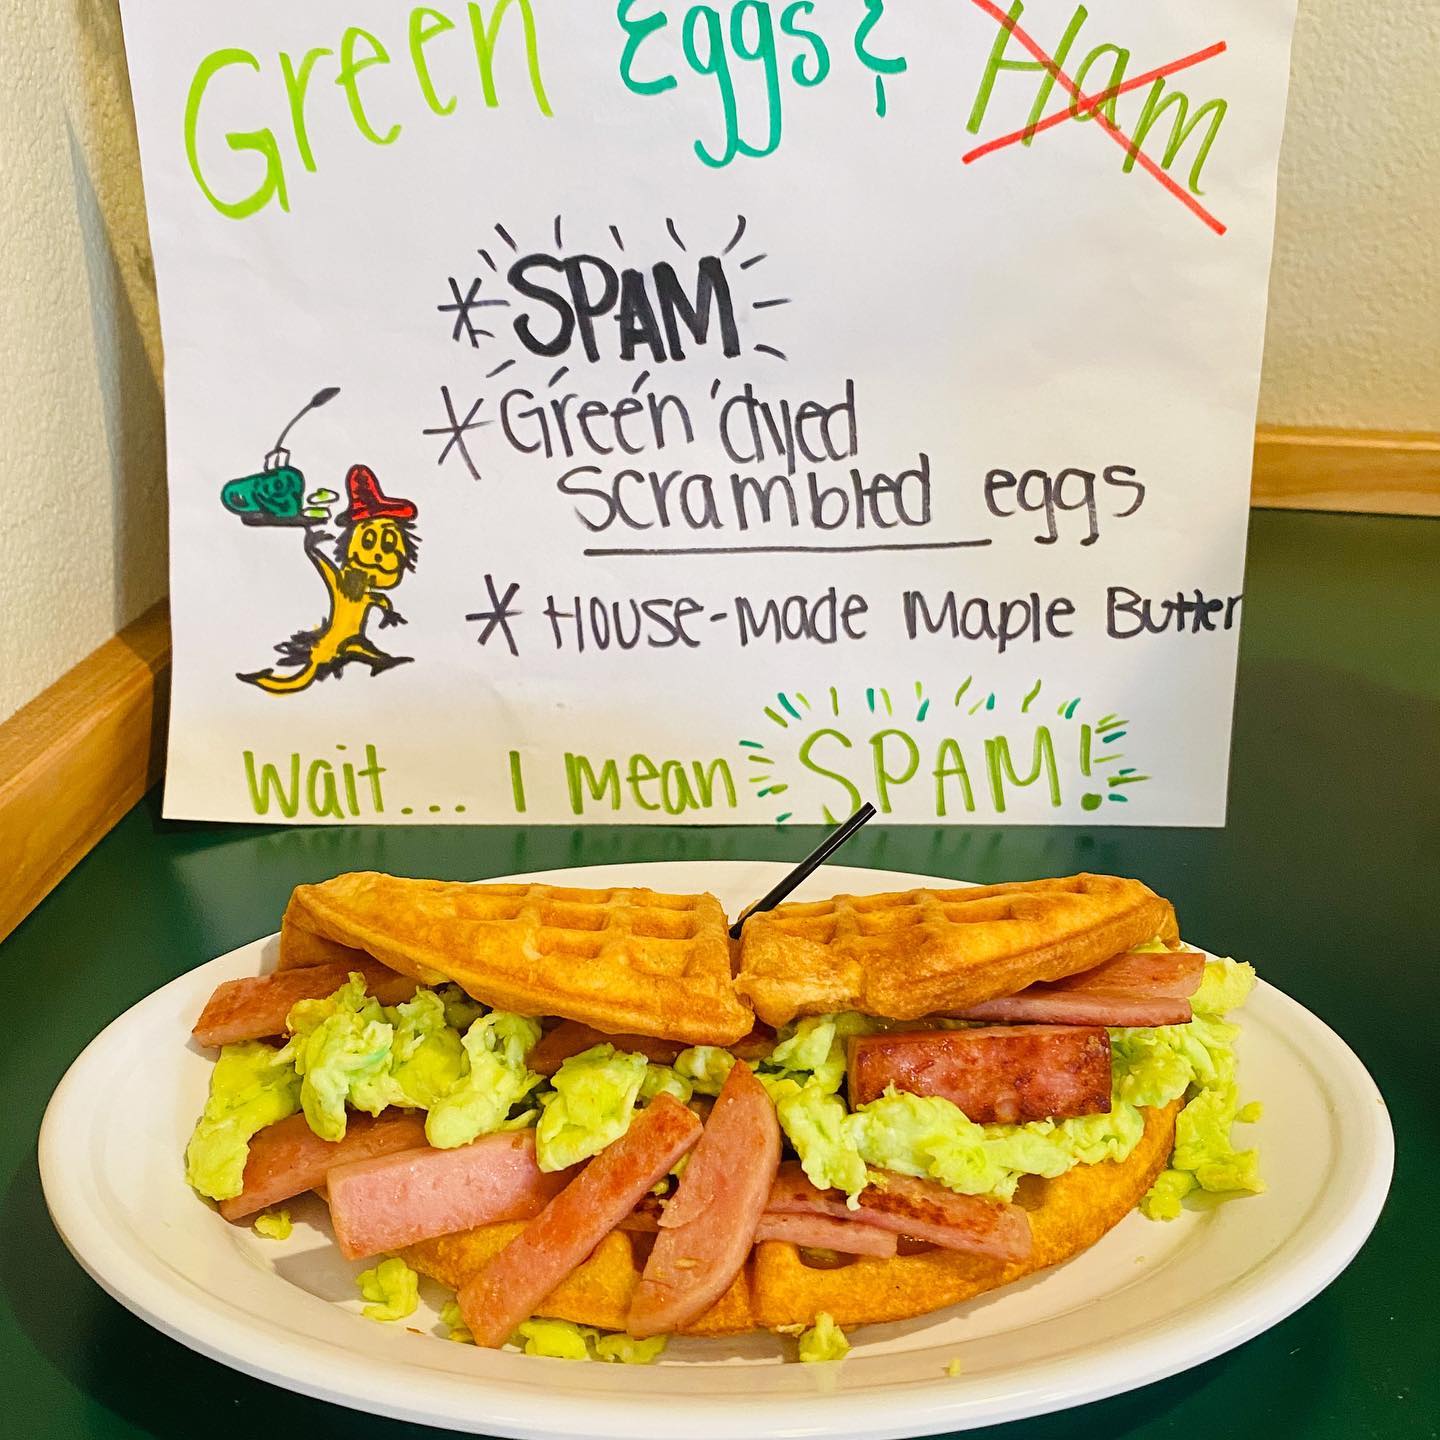 Green Eggs & Ham
* SPAM
* Green dyed
scrambled eggs
* House-made Maple Butter
Wait... I mean SPAM!